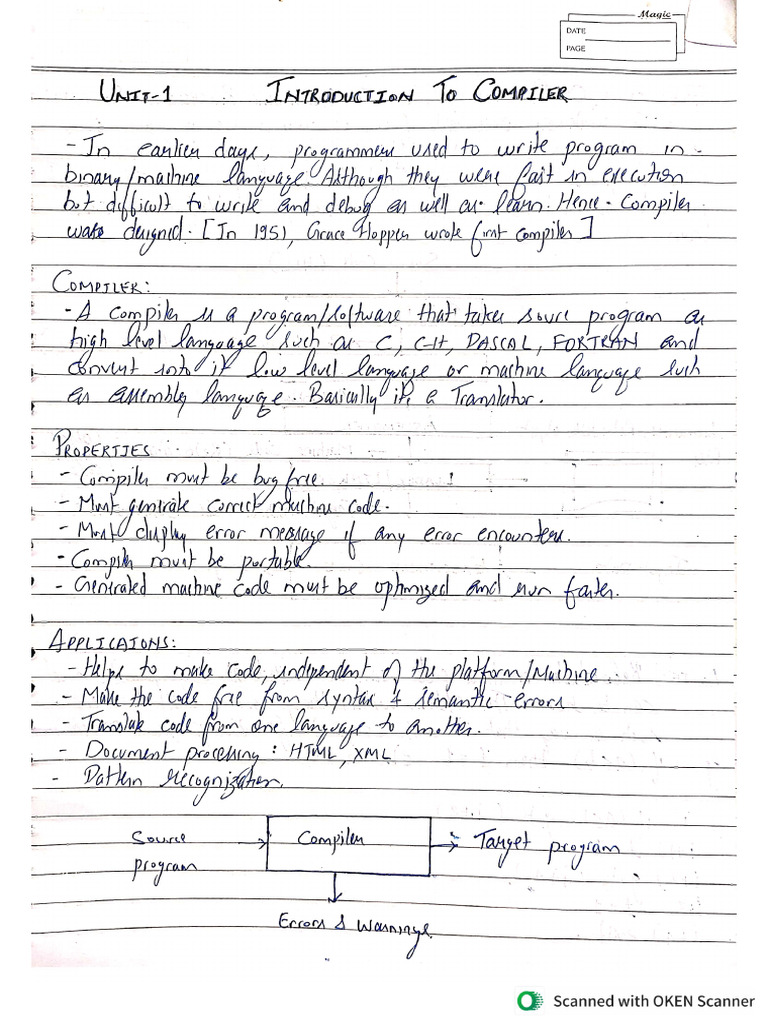 Magic
DATE
PAGE
UNIT-1 INTRODUCTION TO COMPILER
- In earlier days, programmers used to write program in
binary/machine language. Although they were fast in execution
but difficult to write and debug as well as learn. Hence Compiler
designed. [In 1951, Grace Hopper wrote first compiler]
COMPILER:
- A compiler is a program/software that takes source program as
high level language such as C, C++, PASCAL, FORTRAN and
convert into it low level language or machine language such
as assembly language. Basically it's a Translator.
PROPERTIES
- Compiler must be bug free.
- Must generate correct machine code.
- Must display error message if any error encounters.
- Compiler must be portable.
- Generated machine code must be optimized and run faster.
APPLICAIONS:
- Helps to make code, independent of the platform/Machine.
- Make the code free from syntax & semantic errors
- Translate code from one language to another.
- Document processing : HTML, XML
- Pattern recognization.
Source Compiler Target program
program
Errors & Warnings.
Scanned with OKEN Scanner